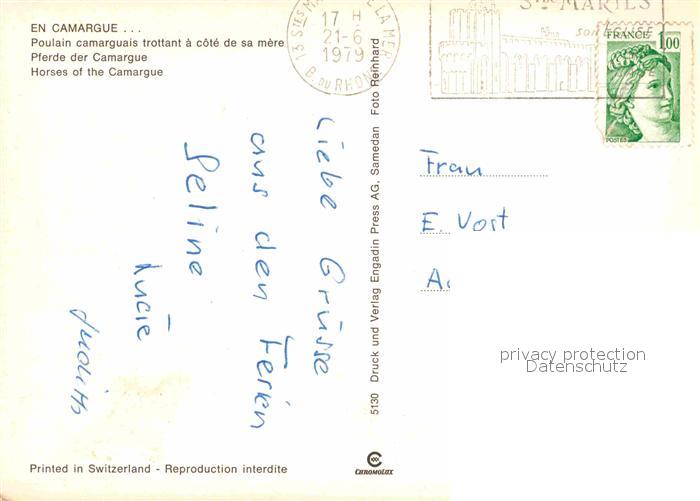 EN CAMARGUE . . .
Poulain camarguais trottant à côté de sa mère
Pferde der Camargue
Horses of the Camargue
17 H
21-6
1979
13 STES MA LA MER
B. DU RHONE
STES MARIES
son
FRANCE
1,00
POSTES
Liebe Grüsse
aus den Ferien
Seline
Lucie
Judith
5130 Druck und Verlag Engadin Press AG, Samedan Foto Reinhard
Frau
E. Vost
A.
privacy protection
Datenschutz
Printed in Switzerland - Reproduction interdite
CHROMOLUX